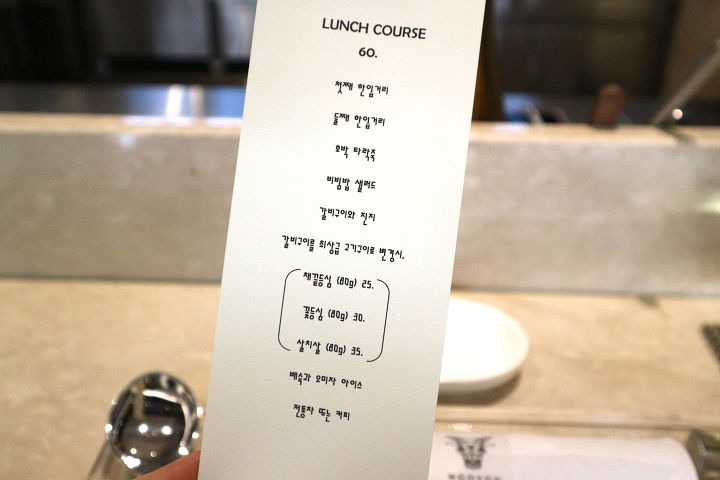 LUNCH COURSE
60.
첫째 한입거리
둘째 한입거리
호박 타락죽
비빔밥 샐러드
갈비구이와 진지
갈비구이를 최상급 고기구이로 변경시.
채끝등심 (80g) 25.
꽃등심 (80g) 30.
살치살 (80g) 35.
배숙과 오미자 아이스
전통차 또는 커피